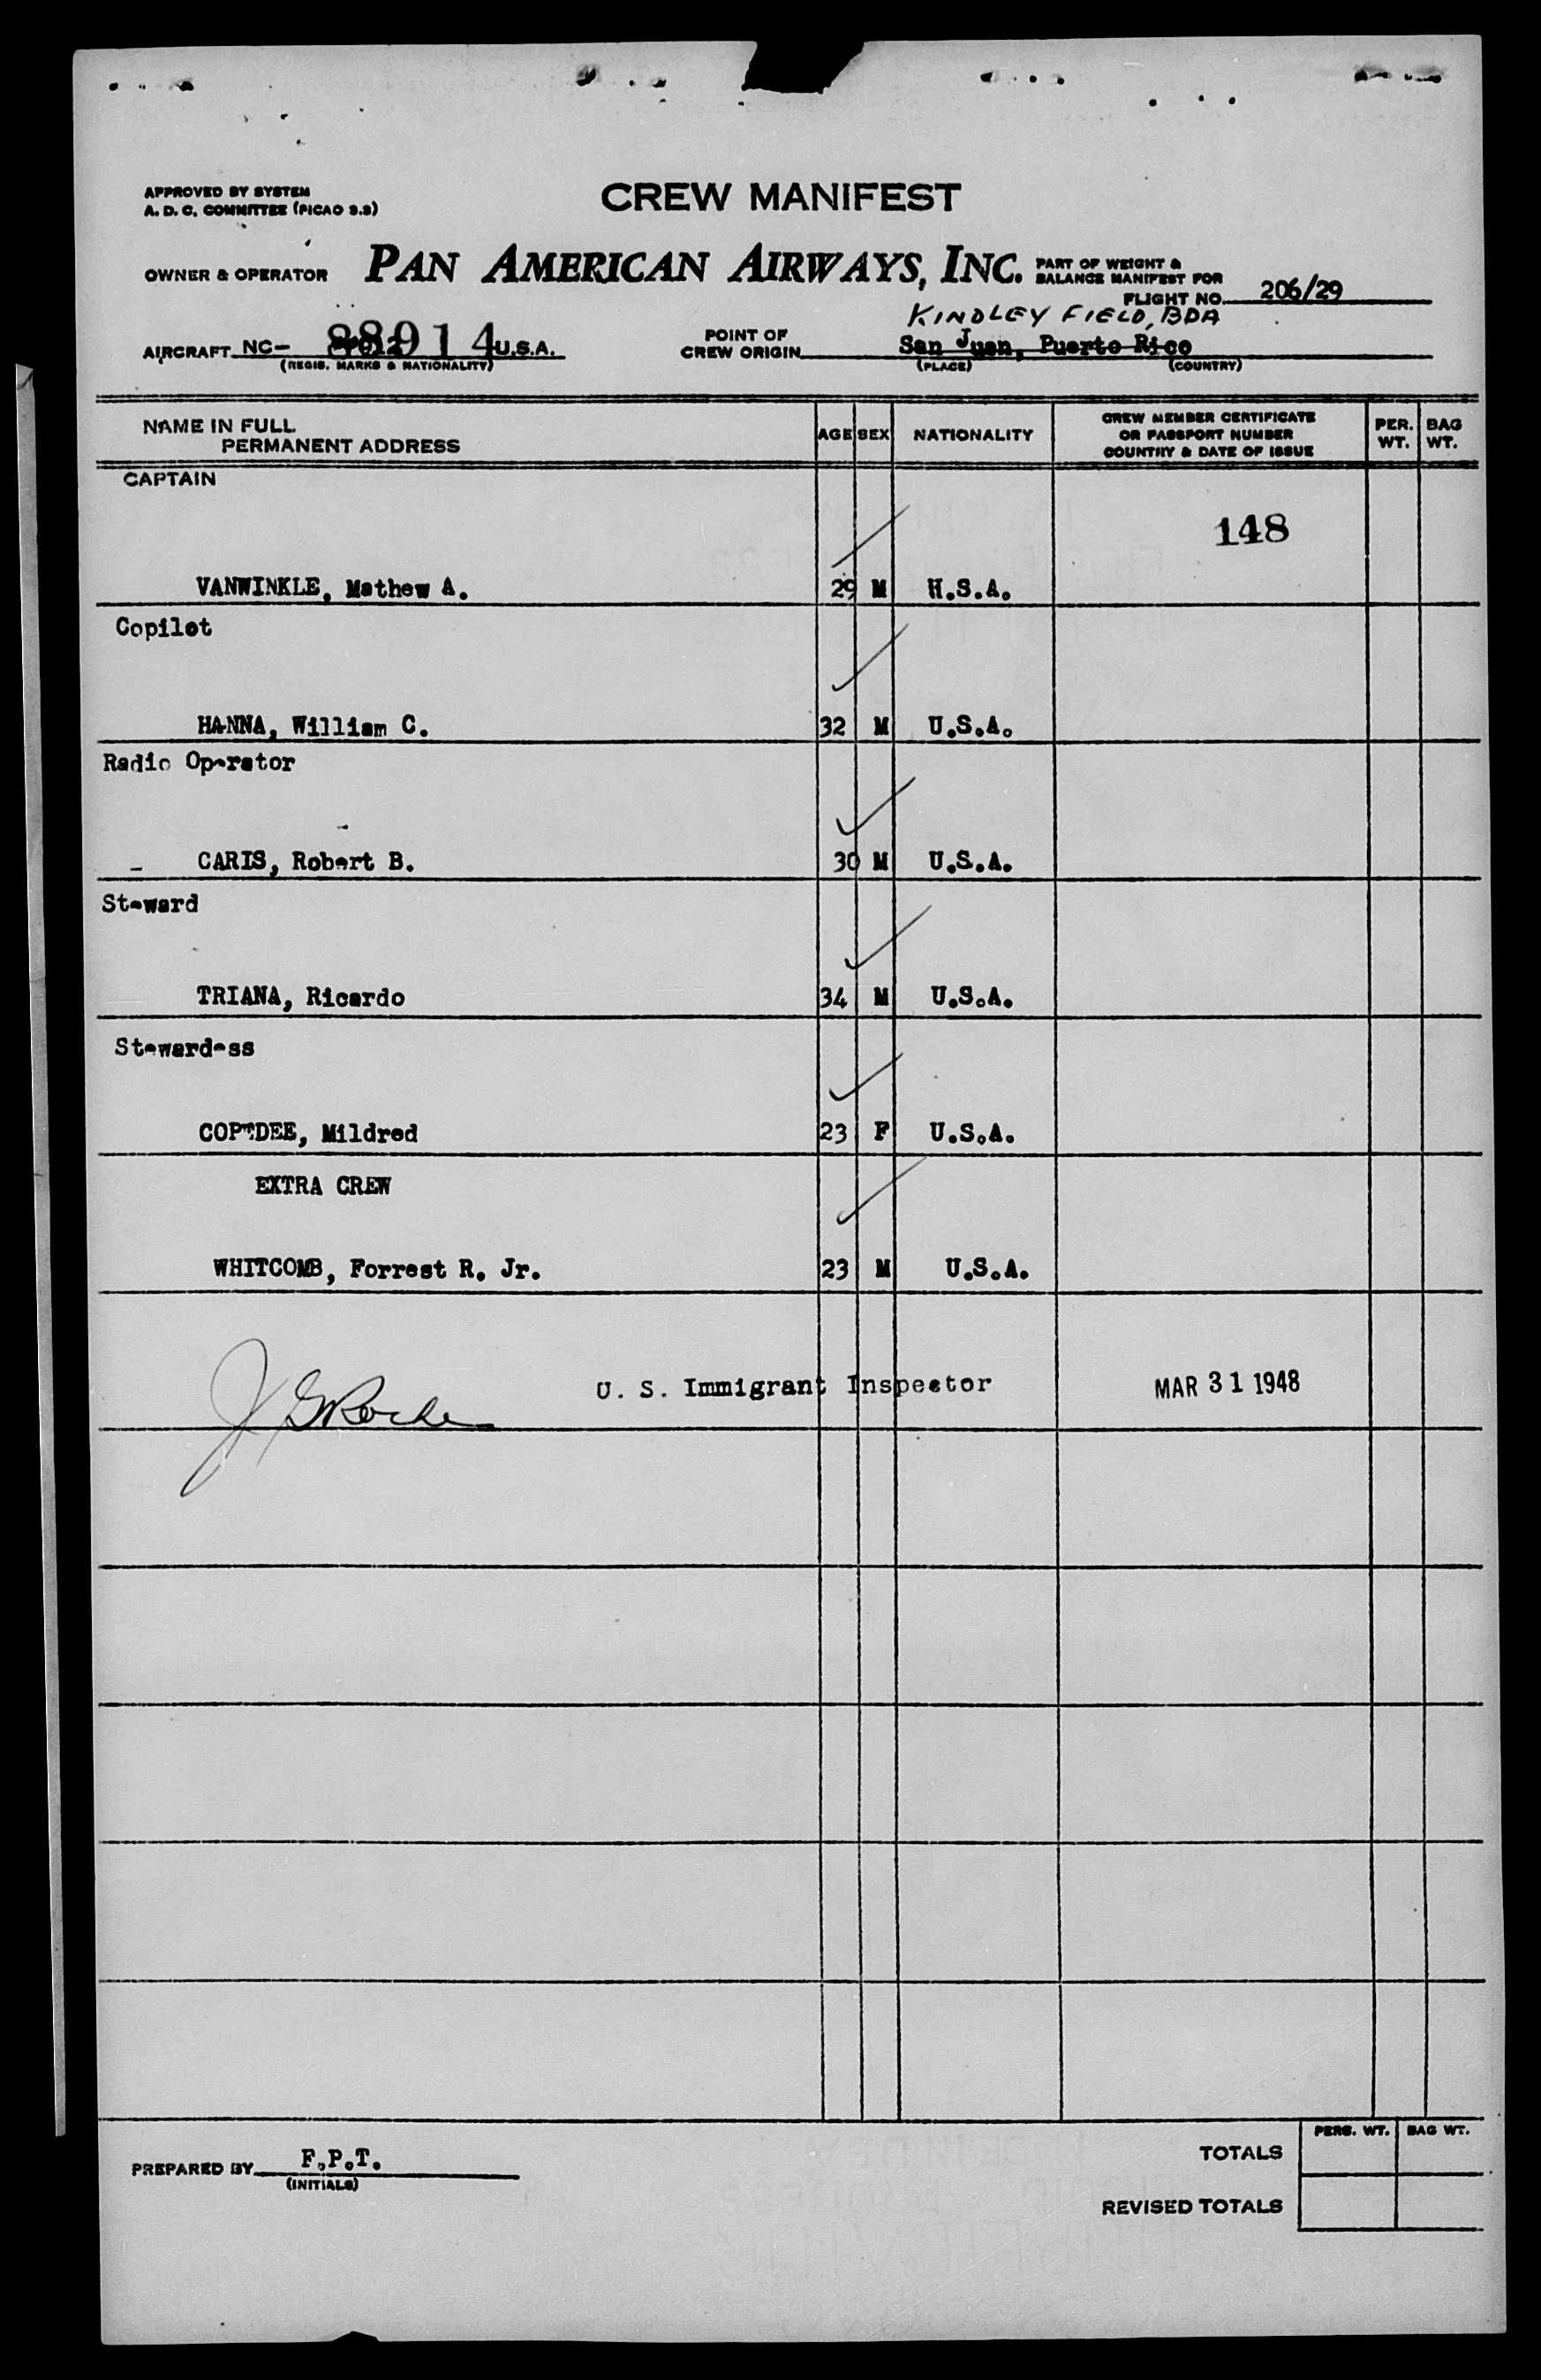 APPROVED BY SYSTEM
A. D. C. COMMITTEE (PICAO 9.3)
CREW MANIFEST
OWNER & OPERATOR PAN AMERICAN AIRWAYS, INC. PART OF WEIGHT &
BALANCE MANIFEST FOR
FLIGHT NO. 206/29
KINDLEY FIELD, BDA
AIRCRAFT NC- 88914 U.S.A. POINT OF
CREW ORIGIN San Juan, Puerto Rico
(REGIS. MARKS & NATIONALITY) (PLACE) (COUNTRY)
NAME IN FULL
PERMANENT ADDRESS
AGE SEX NATIONALITY
CREW MEMBER CERTIFICATE
OR PASSPORT NUMBER
COUNTRY & DATE OF ISSUE
PER.
WT.
BAG
WT.
CAPTAIN
148
VANWINKLE, Mathew A. 29 M H.S.A.
Copilot
HANNA, William C. 32 M U.S.A.
Radio Operator
CARIS, Robert B. 30 M U.S.A.
Steward
TRIANA, Ricardo 34 M U.S.A.
Stewardess
Mildred 23 F U.S.A.
EXTRA CREW
WHITCOMB, Forrest R. Jr. 23 M U.S.A.
U. S. Immigrant Inspector MAR 31 1948
PREPARED BY F.P.T.
(INITIALS)
PERS. WT. BAG WT.
TOTALS
REVISED TOTALS